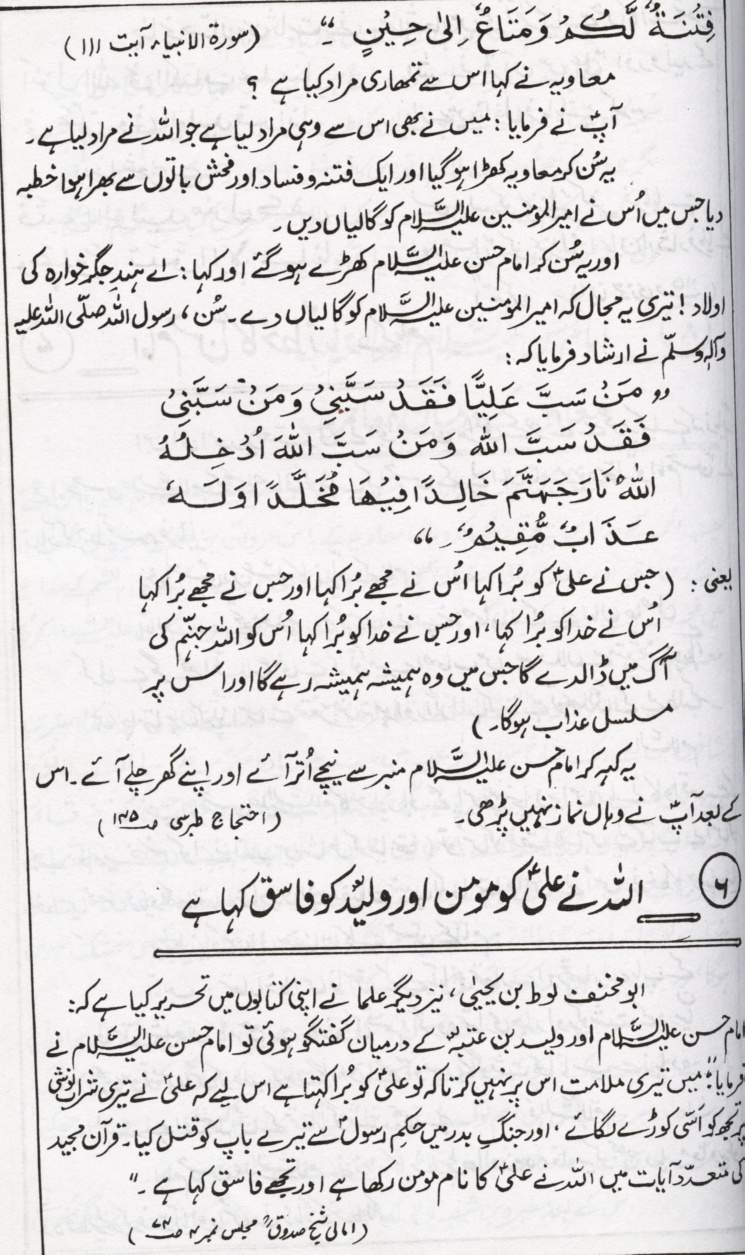 فِتْنَةٌ لَّكُمْ وَمَتَاعٌ اِلٰى حِيْنٍ ۔“ (سورة الانبیاء آیت ۱۱۱)
معاویہ نے کہا اس سے تمھاری مراد کیا ہے ؟
آپؑ نے فرمایا : میں نے بھی اس سے وہی مراد لیا ہے جو اللہ نے مراد لیا ہے ۔
یہ سُن کر معاویہ کھڑا ہوگیا اور ایک فتنہ و فساد اور فحش باتوں سے بھرا ہوا خطبہ
دیا جس میں اُس نے امیرالمؤمنین علیہ السَّلام کو گالیاں دیں ۔
اور یہ سُن کر امام حسن علیہ السَّلام کھڑے ہوگئے اور کہا : اے ہندِ جگر خوارہ کی
اولاد ! تیری یہ مجال کہ امیرالمؤمنین علیہ السَّلام کو گالیاں دے ۔ سُن ، رسول اللہ صلّی اللہ علیہ
وآلہٖ وسلّم نے ارشاد فرمایا کہ :
” مَنْ سَبَّ عَلِيًّا فَقَدْ سَبَّنِيْ وَمَنْ سَبَّنِيْ
فَقَدْ سَبَّ اللهَ وَمَنْ سَبَّ اللهَ اَدْخَلَهُ
اللهُ نَارَ جَهَنَّمَ خَالِدًا فِيْهَا مُخَلَّدًا وَلَهٗ
عَذَابٌ مُّقِيْمٌ ۔“
یعنی : ( جس نے علیؑ کو بُرا کہا اُس نے مجھے بُرا کہا اور جس نے مجھے بُرا کہا
اُس نے خدا کو بُرا کہا ، اور جس نے خدا کو بُرا کہا اُس کو اللہ جہنّم کی
آگ میں ڈالدے گا جس میں وہ ہمیشہ ہمیشہ رہے گا اور اس پر
مسلسل عذاب ہوگا ۔ )
یہ کہہ کر امام حسن علیہ السَّلام منبر سے نیچے اُتر آئے اور اپنے گھر چلے آئے ۔ اس
کے بعد آپؑ نے وہاں نماز نہیں پڑھی ۔ ( احتجاج طبرسی ص ۱۴۵ )
۶ ــــ اللہ نے علیؑ کو مومن اور ولید کو فاسق کہا ہے
ابو مخنف لوط بن یحییٰ ، نیز دیگر علما نے اپنی کتابوں میں تحریر کیا ہے کہ :
امام حسن علیہ السَّلام اور ولید بن عتبہ کے درمیان گفتگو ہوئی تو امام حسن علیہ السَّلام نے
فرمایا : ”میں تیری ملامت اس پر نہیں کرتا کہ تو علیؑ کو بُرا کہتا ہے اس لیے کہ علیؑ نے تیری شراب نوشی
پر تجھ کو اَسّی کوڑے لگائے ، اور جنگِ بدر میں حکمِ رسولؐ سے تیرے باپ کو قتل کیا ۔ قرآن مجید
کی متعدّد آیات میں اللہ نے علیؑ کا نام مومن رکھا ہے اور تجھے فاسق کہا ہے ۔“
( امالی شیخ صدوقؒ مجلس نمبر